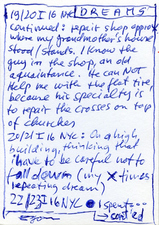 19/20 I 16 NYC DREAMS
continued: repair shop approx
where my grandmother's house
stood/stands. I know the
guy in the shop, an old
aquaintance. He can Not
Help me with the flat tire
because his specialty is
to repair the crosses on top
of churches
20/21 I 16 NYC: On a high
building, thinking that
i have to be careful not to
fall down (my X times
repeating dream)
22/23 I 16 NYC I spent...
cont'ed